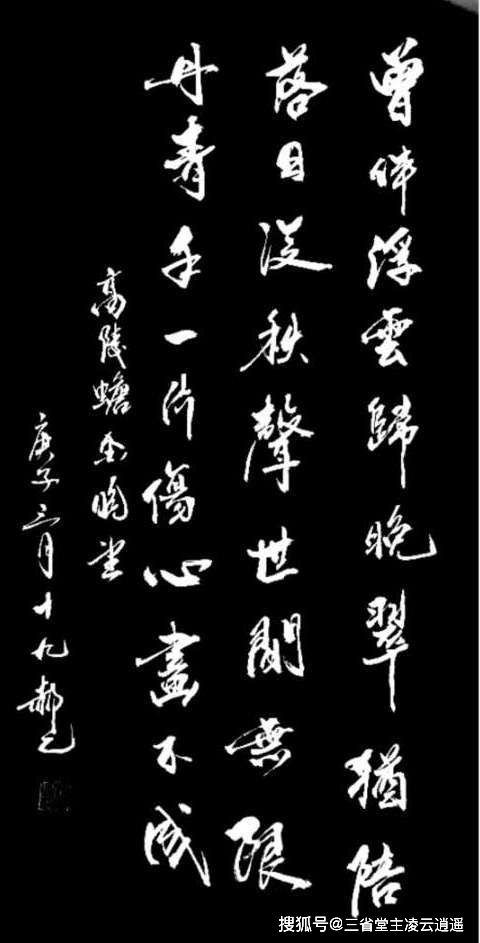 曾伴浮雲歸晚翠猶陪
落日没秋聲世間無限
丹青手一片傷心畫不成
高陵蟾金晚望
庚子三月十九郝
搜狐号@三省堂主凌云逍遥